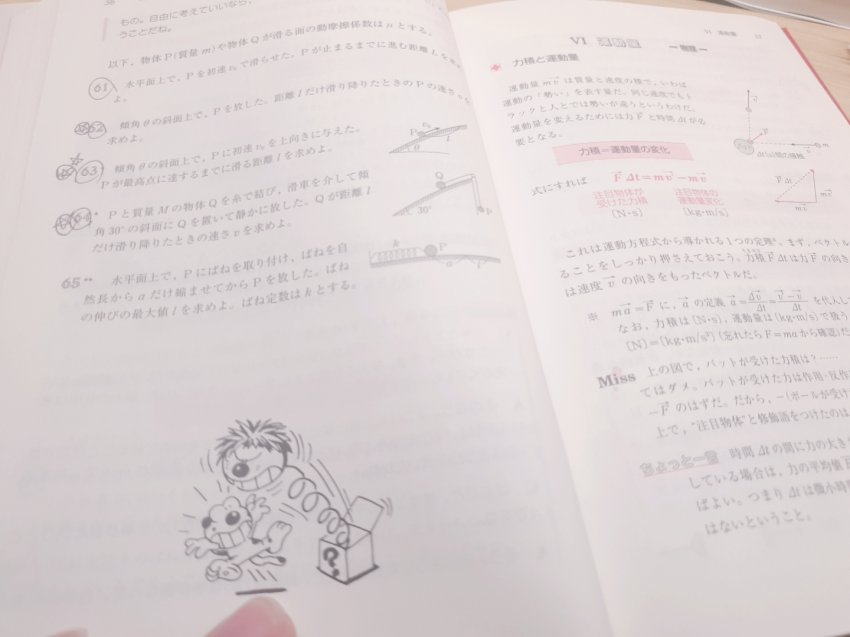 38
もの。自由に考えていいなら、
うことだね。
以下、物体P(質量m)や物体Qが滑る面の動摩擦係数はμとする。
61 水平面上で、Pを初速v₀で滑らせた。Pが止まるまでに進む距離lを求め
よ。
62 傾角θの斜面上で、Pを放した。距離lだけ滑り降りたときのPの速さ
求めよ。
63 傾角θの斜面上で、Pに初速v₀を上向きに与えた。
Pが最高点に達するまでに滑る距離lを求めよ。
64* Pと質量Mの物体Qを糸で結び、滑車を介して傾
角30°の斜面にQを置いて静かに放した。Qが距離l
だけ滑り降りたときの速さvを求めよ。
65** 水平面上で、Pにばねを取り付け、ばねを自
然長からaだけ縮ませてからPを放した。ばね
の伸びの最大値lを求めよ。ばね定数はkとする。
P
v₀
θ
l
Q
30°
P
k
P
a
l
?
VI 運動量
VI
力積と運動量
運動量 mv⃗ は質量と速度の積で、いわば
運動の「勢い」を表す量だ。同じ速度でもト
ラックと人とでは勢いが違うというわけだ。
運動量を変えるためには力 F⃗ と時間 Δt が必
要となる。
力積=運動量の変化
式にすれば F⃗Δt=mv⃗−mv⃗
注目物体が 注目物体の
受けた力積 運動量変化
〔N・s〕 〔kg・m/s〕
Δtの間の接触
F⃗Δt
mv⃗
mv⃗
これは運動方程式から導かれる1つの定理。まず、ベクトル
ることをしっかり押さえておこう。力積 F⃗Δt は力 F⃗ の向き
は速度 v⃗ の向きをもったベクトルだ。
※ ma⃗=F⃗ に、a⃗ の定義 a⃗=Δv⃗/Δt=(v⃗−v⃗)/Δt を代入し
なお、力積は〔N・s〕、運動量は〔kg・m/s〕で扱う
〔N〕=〔kg・m/s²〕(忘れたら F=ma から確認)だ
Miss 上の図で、バットが受けた力積は?……
てはダメ。バットが受けた力は作用・反作
−F⃗ のはずだ。だから、−(ボールが受け
上で、"注目物体"と修飾語をつけたのは
ちょっと一言 時間 Δt の間に力の大き
している場合は、力の平均値
ばよい。つまり Δt は微小時
はないということ。